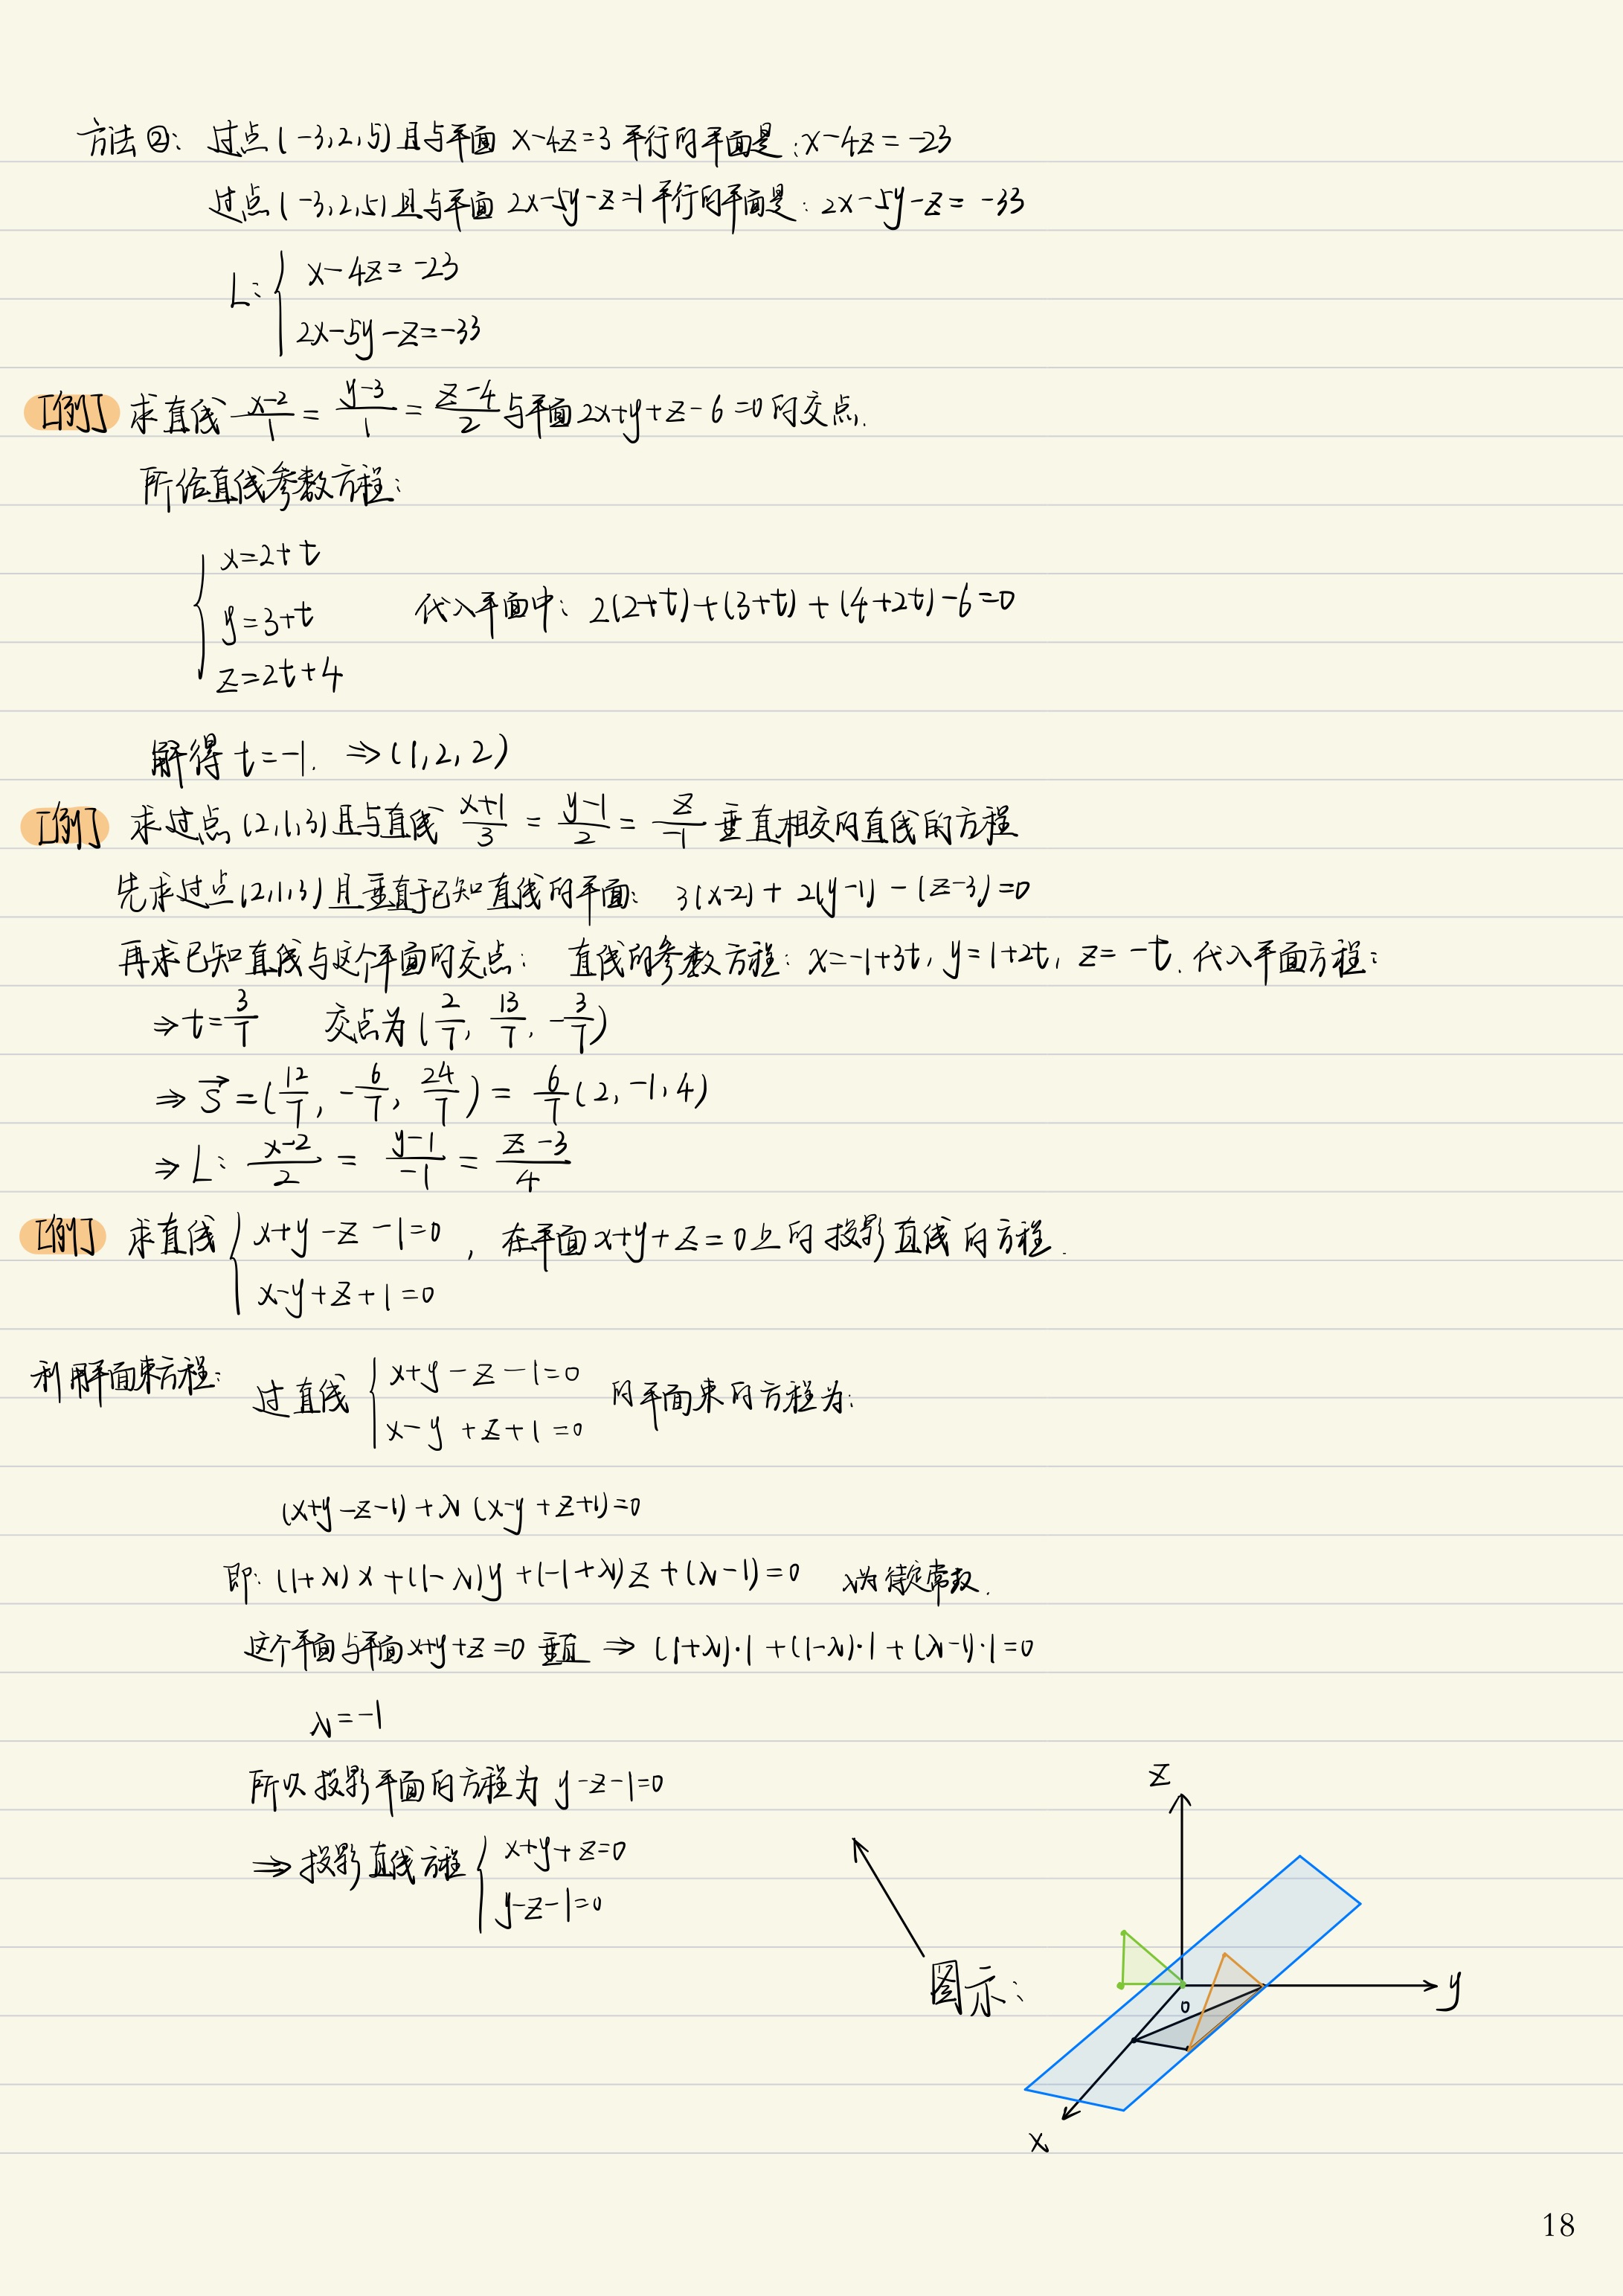 方法②: 过点(-3,2,5)且与平面 x-4z=3 平行的平面是: x-4z=-23
过点(-3,2,5)且与平面 2x-5y-z=1 平行的平面是: 2x-5y-z=-33
L: { x-4z=-23
2x-5y-z=-33
[例] 求直线 (x-2)/1 = (y-3)/1 = (z-4)/2 与平面 2x+y+z-6=0 的交点.
所给直线参数方程:
{ x=2+t
y=3+t 代入平面中: 2(2+t)+(3+t)+(4+2t)-6=0
z=2t+4
解得 t=-1. ⇒(1,2,2)
[例] 求过点(2,1,3)且与直线 (x+1)/3 = (y-1)/2 = z/-1 垂直相交的直线的方程
先求过点(2,1,3)且垂直于已知直线的平面: 3(x-2)+2(y-1)-(z-3)=0
再求已知直线与这个平面的交点: 直线的参数方程: x=-1+3t, y=1+2t, z=-t. 代入平面方程:
⇒ t=3/7 交点为(2/7, 13/7, -3/7)
⇒ s→=(12/7, -6/7, 24/7) = 6/7(2,-1,4)
⇒ L: (x-2)/2 = (y-1)/-1 = (z-3)/4
[例] 求直线 { x+y-z-1=0 , 在平面 x+y+z=0 上的投影直线的方程.
x-y+z+1=0
利用平面束方程: 过直线 { x+y-z-1=0 的平面束的方程为:
x-y+z+1=0
(x+y-z-1)+λ(x-y+z+1)=0
即: (1+λ)x+(1-λ)y+(-1+λ)z+(λ-1)=0 λ为待定常数.
这个平面与平面x+y+z=0 垂直 ⇒ (1+λ)·1+(1-λ)·1+(λ-1)·1=0
λ=-1
所以投影平面的方程为 y-z-1=0
⇒ 投影直线方程 { x+y+z=0
y-z-1=0
图示:
z
y
o
x
18